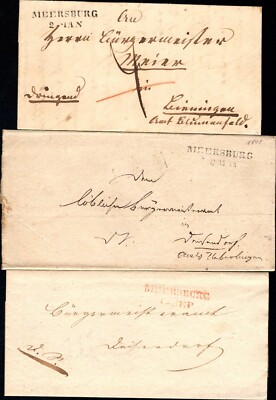 MEERSBURG
2 JAN
An
Herrn Bürgermeister
Meier
in
Dringend
Bieningen
Amt Blumenfeld.
MEERSBURG
Dem
löbliche Bürgermeisteramt
Deisendorf
Amts Ueberlingen
MEERSBURG
SEP
Bürgermeisteramt
Deisendorf